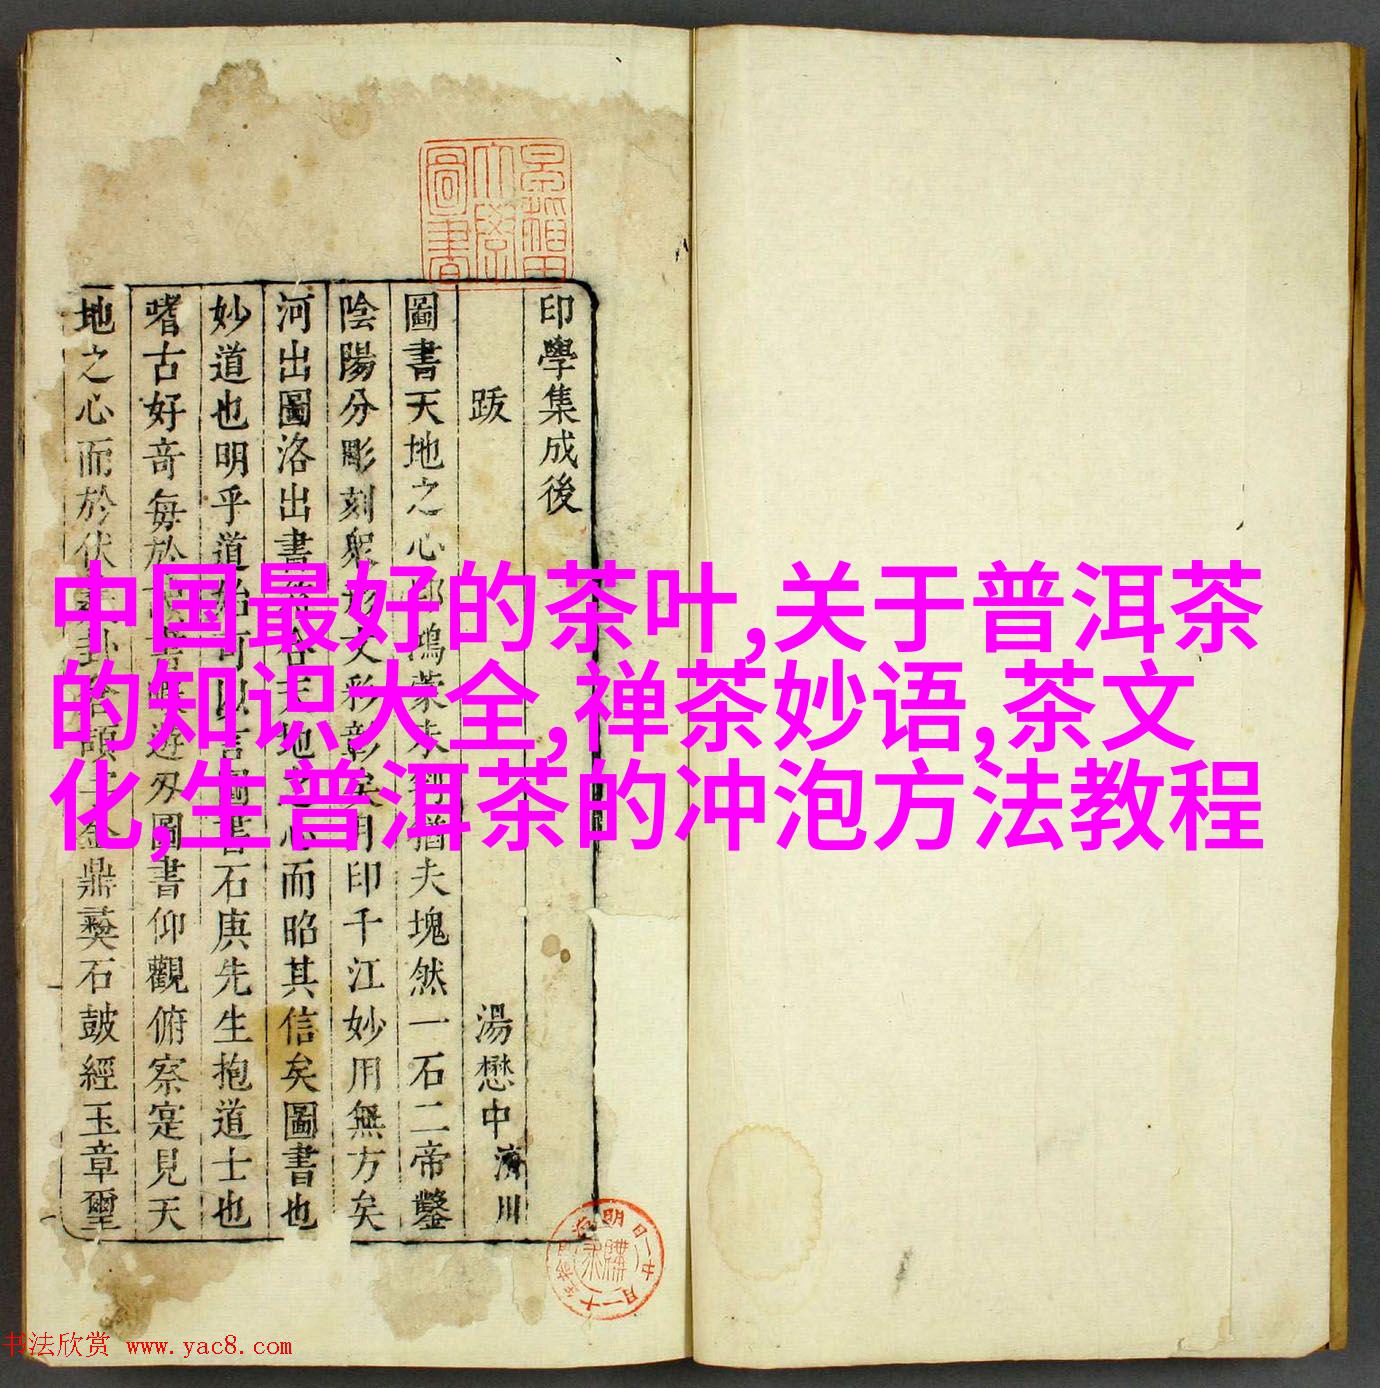 印學集成後
跋
湯懋中
濟川
圖書天地之心
鴻蒙未判猶夫塊然一石二帝鑿
陰陽分彫刻
文彩彰矣月印千江妙用無方矣
河出圖洛出書
合天地之心而昭其信矣圖書也
妙道也明乎道始可以言圖書石庚先生抱道士也
嗜古好竒每於
遊刃圖書仰觀俯察寔見天
地之心而於伏
卦
金鼎彝石鼓經玉章璽
中国最好的茶叶,关于普洱茶
的知识大全,禅茶妙语,茶文
化,生普洱茶的冲泡方法教程
書法欣赏 www.yac8.com